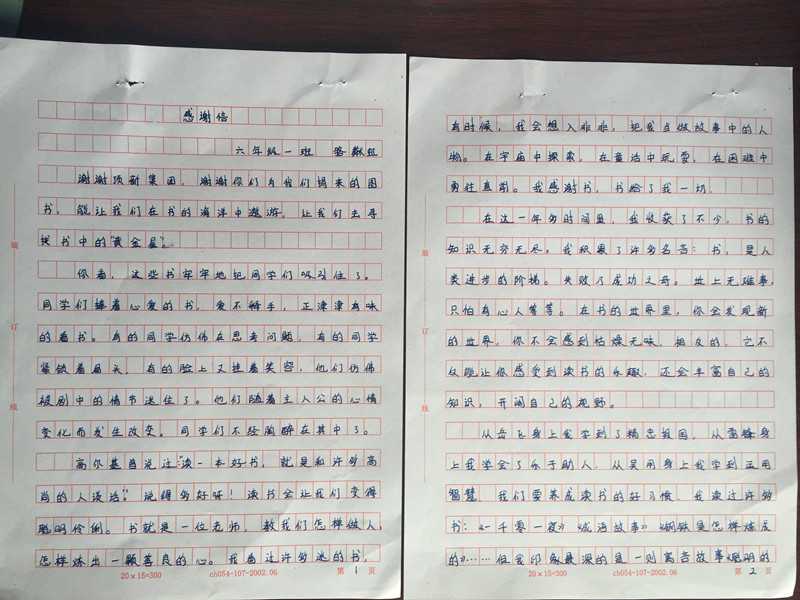 感谢信
六年级一班
谢谢顶新集团，谢谢你们为我们捐来的图
书。能让我们在书的海洋中遨游，让我们去寻
找书中的“黄金屋”。
你看，这些书牢牢地把同学们吸引住了。
同学们捧着心爱的书，爱不释手，正津津有味
的看书。有的同学仿佛在思考问题，有的同学
紧锁着眉头，有的脸上又挂着笑容，他们仿佛
被剧中的情节迷住了。他们随着主人公的心情
变化而发生改变。同学们不经陶醉在其中了。
高尔基曾说过“读一本好书，就是和许多高
尚的人谈话”说得多好呀！读书会让我们变得
聪明伶俐。书就是一位老师，教我们怎样做人，
怎样炼出一颗善良的心。我看过许多迷的书，
20×15=300
ch054-107-2002.06
第1页
装
订
线
有时候，我会想入非非，把我当做故事中的人
物。在宇宙中探索，在童话中玩耍，在困难中
勇往直前。我感谢书，书给了我一切。
在这一年多时间里，我收获了不少，书的
知识无穷无尽。我积累了许多名言：书，是人
类进步的阶梯。失败乃成功之母。世上无难事，
只怕有心人等等。在书的世界里，你会发现新
的世界，你不会感到枯燥无味，相反的，它不
仅能让你感受到读书的乐趣，还会丰富自己的
知识，开阔自己的视野。
从岳飞身上我学到了精忠报国，从雷锋身
上我学会了乐于助人，从吴用身上我学到运用
智慧。我们要养成读书的好习惯，我读过许多
书：《一千零一夜》《成语故事》《钢铁是怎样炼成
的》……但我印象最深的是一则寓言故事《聪明的
20×15=300
ch054-107-2002.06
第2页
装
订
线